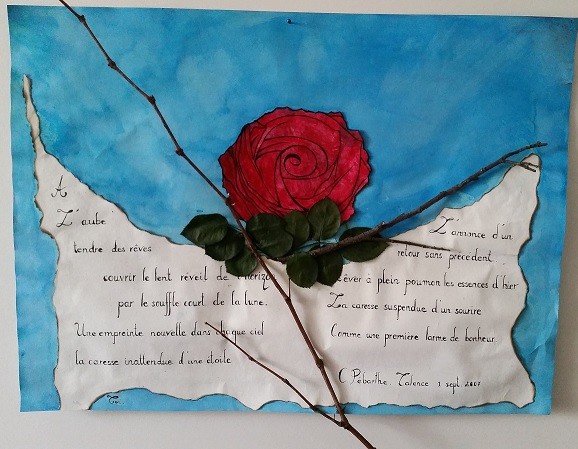 A
L'aube
tendre des rêves
couvrir le lent réveil de l'horizon
par le souffle court de la lune.
Une empreinte nouvelle dans chaque ciel
la caresse inattendue d'une étoile
L'avance d'un
retour sans précédent
rêver à plein poumon les essences d'hier
La caresse suspendue d'un sourire
Comme une première larme de bonheur
C Pebarthe. Talence 1 sept 2007